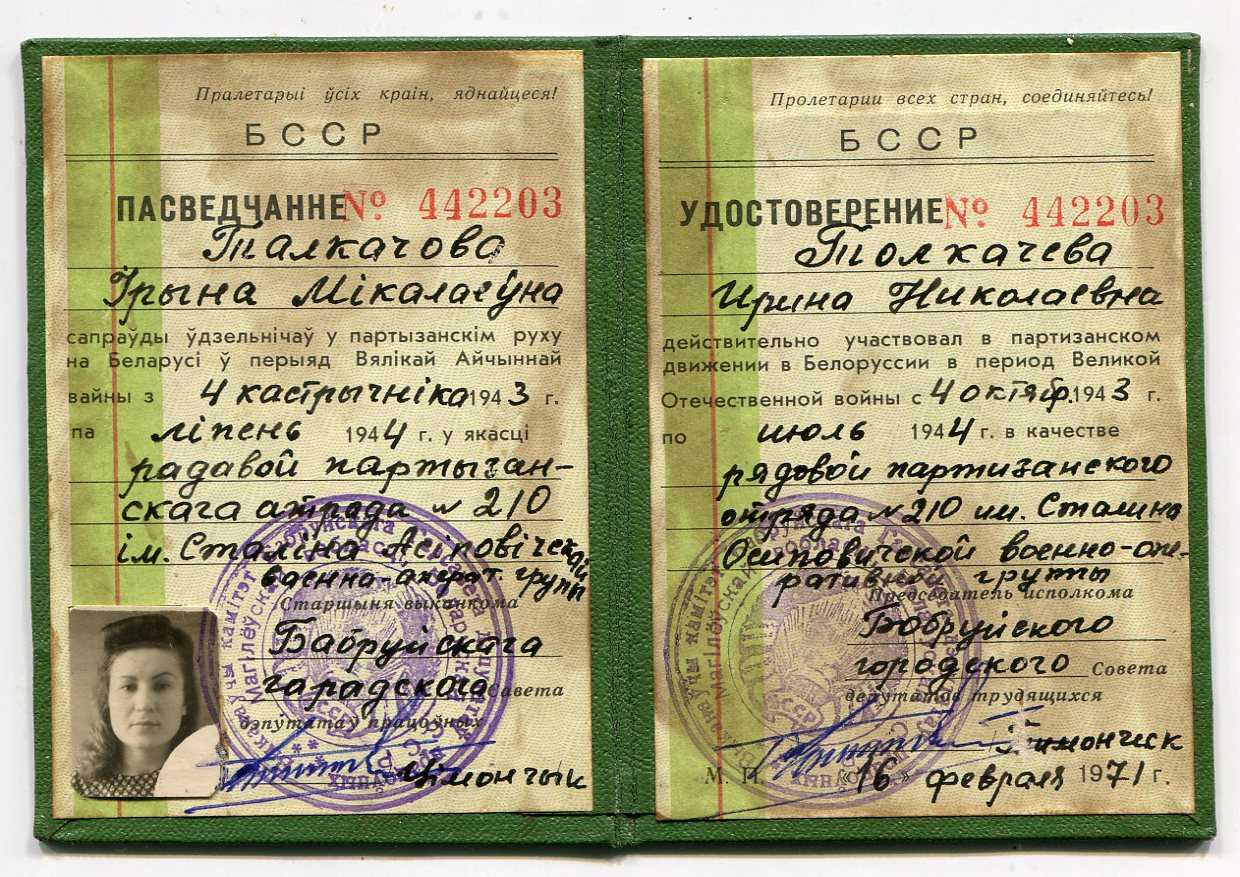 Пралетарыі ўсіх краін, яднайцеся!
БССР
ПАСВЕДЧАННЕ № 442203
Талкачова
Ірына Мікалаеўна
сапраўды ўдзельнічаў у партызанскім руху
на Беларусі ў перыяд Вялікай Айчыннай
вайны з 4 кастрычніка 1943 г.
па ліпень 1944 г. у якасці
радавой партызан-
скага атрада № 210
ім. Сталіна Асіповічскай
ваенна-аперат. групы
Старшыня выканкома
Бабруйскага
гарадскога Савета
дэпутатаў працоўных
Цімончык
Пролетарии всех стран, соединяйтесь!
БССР
УДОСТОВЕРЕНИЕ № 442203
Толкачева
Ирина Николаевна
действительно участвовал в партизанском
движении в Белоруссии в период Великой
Отечественной войны с 4 октяб. 1943 г.
по июль 1944 г. в качестве
рядовой партизанского
отряда № 210 им. Сталина
Осиповичской военно-опе-
ративной группы
Председатель исполкома
Бобруйского
городского Совета
депутатов трудящихся
Тимончик
М. П. «16» февраля 1971 г.